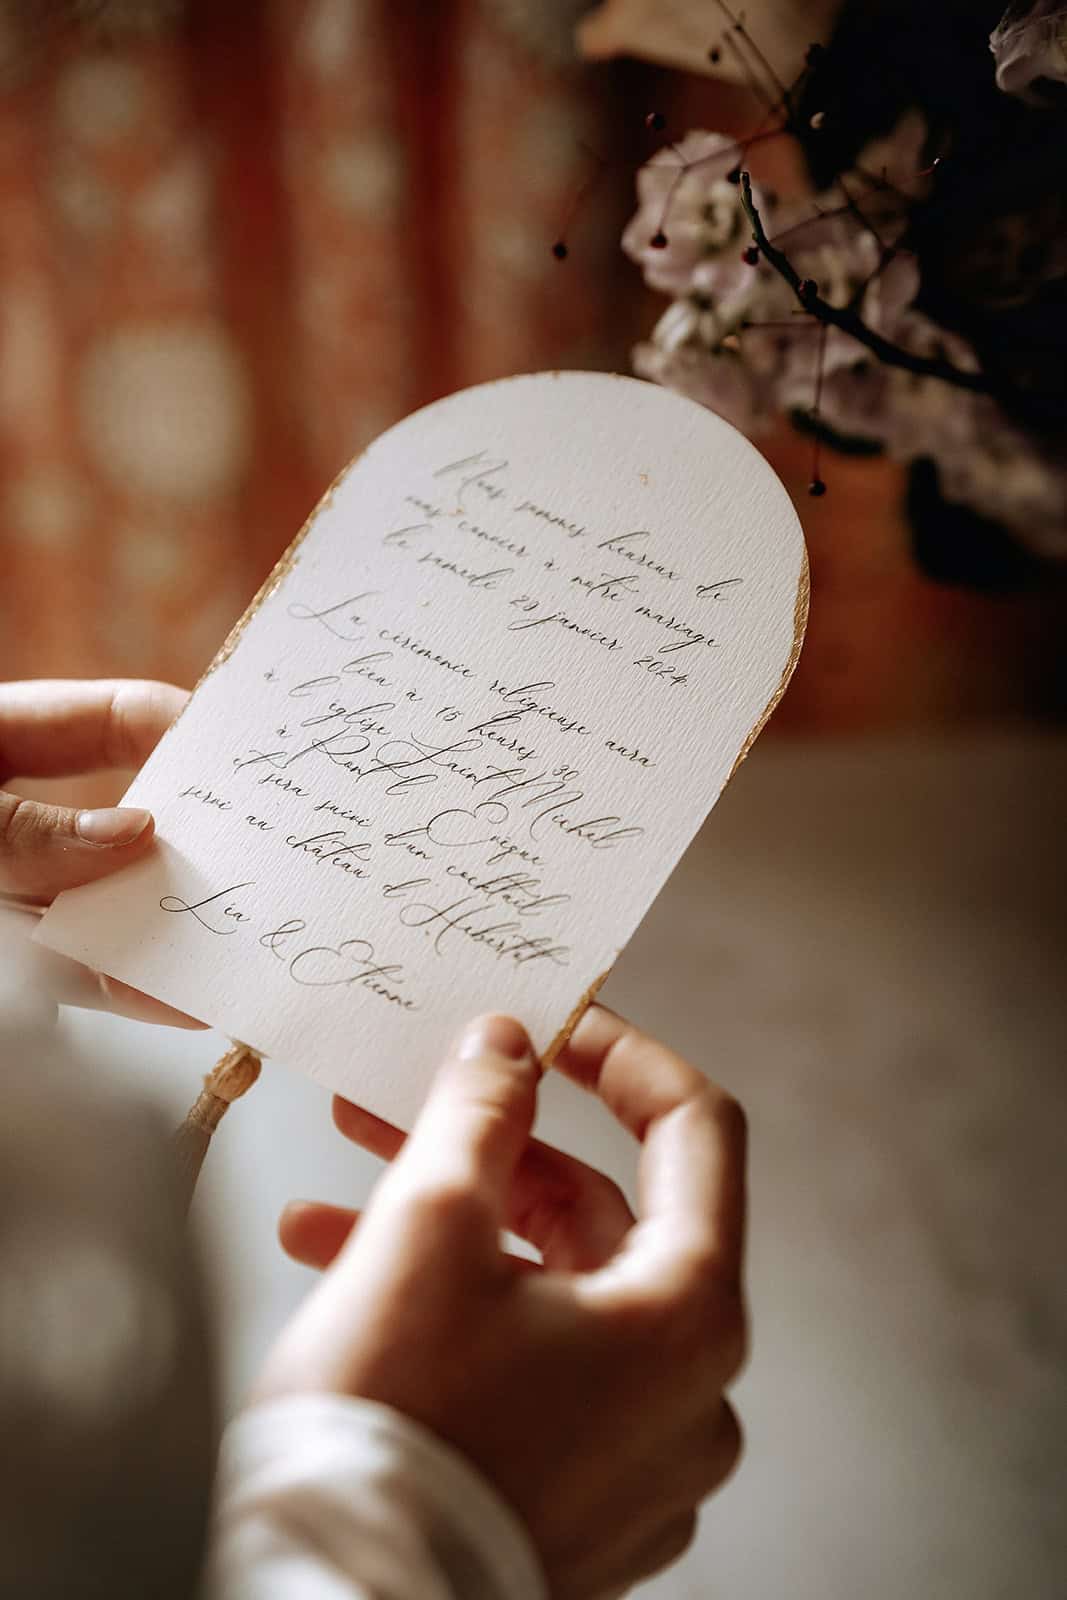 Nous sommes heureux de
vous convier à notre mariage
le samedi 20 janvier 2024
La cérémonie religieuse aura
lieu à 15 heures 30
à l'église Saint Michel
à Pont l'Evêque
et sera suivi d'un cocktail
servi au château d'Hébertot
Léa & Etienne